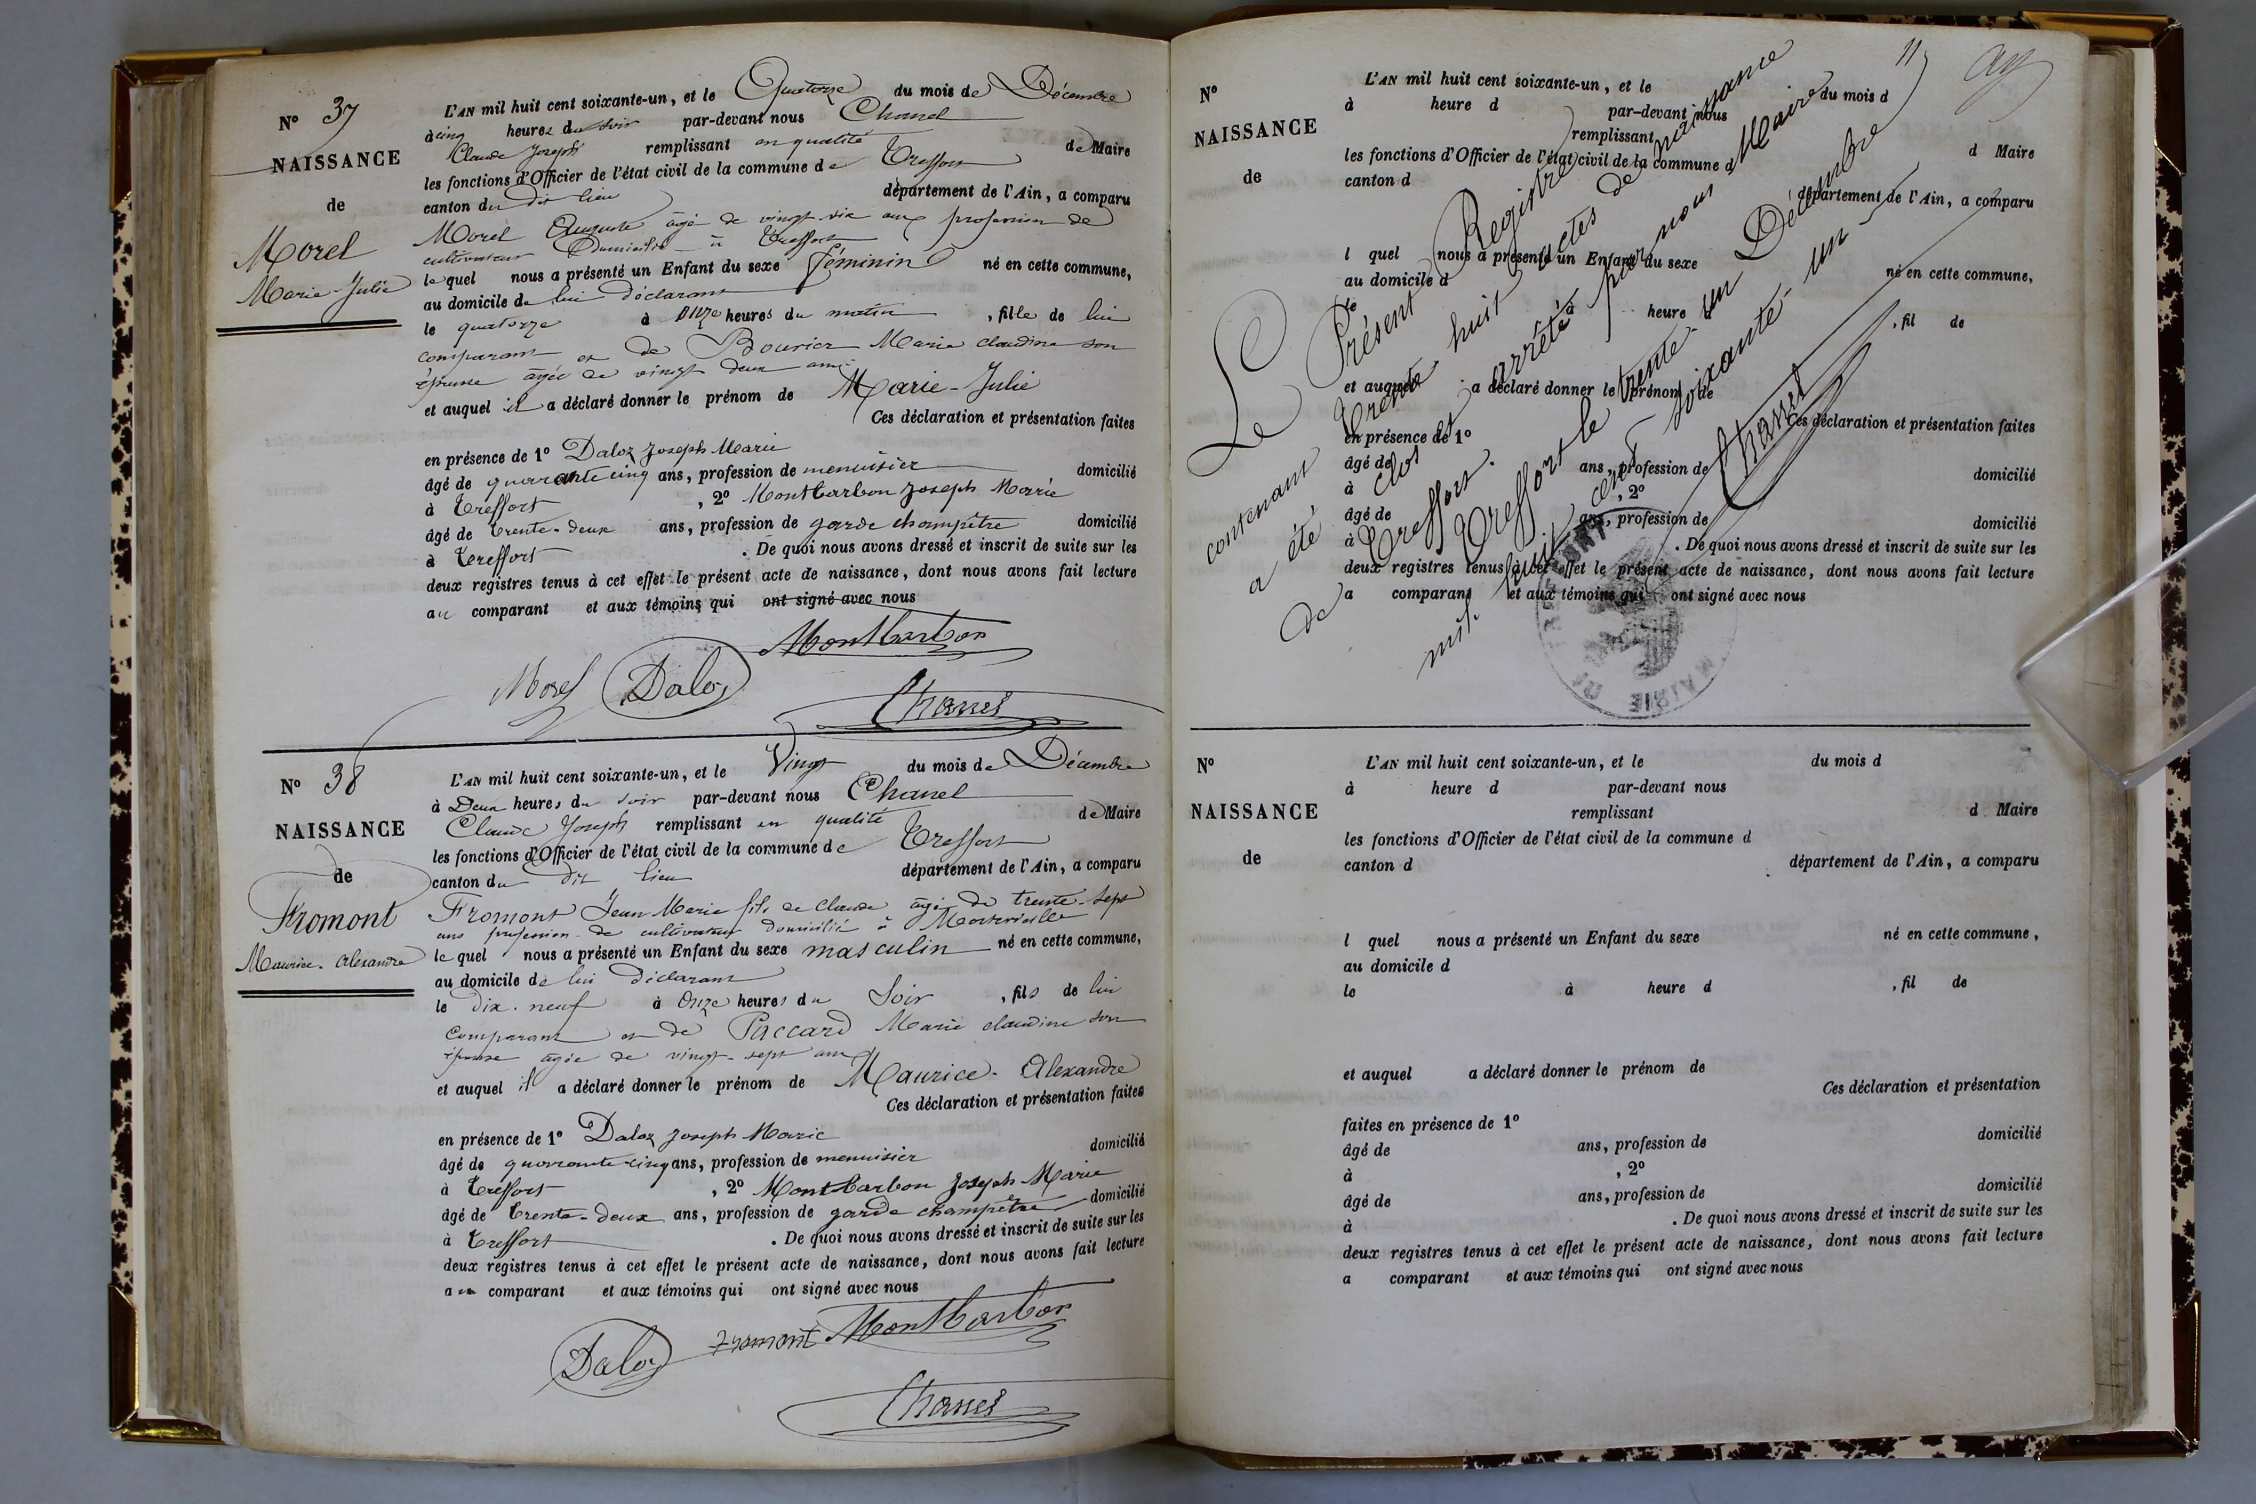 N° 37
NAISSANCE
de
Morel
Marie-Julie
L'AN mil huit cent soixante-un, et le Quatorze du mois de Décembre
à cinq heures du soir par-devant nous Chanel
Claude Joseph remplissant en qualité de Maire
les fonctions d'Officier de l'état civil de la commune de Treffort
canton du dit lieu département de l'Ain, a comparu
Morel Auguste âgé de vingt six ans profession de
cultivateur Domicilié à Treffort
lequel nous a présenté un Enfant du sexe féminin né en cette commune,
au domicile de lui déclarant
le quatorze à onze heures du matin, fille de lui
comparant et de Bourier Marie claudine son
épouse âgée de vingt deux ans
et auquel il a déclaré donner le prénom de Marie-Julie
Ces déclaration et présentation faites
en présence de 1° Daloz Joseph Marie
âgé de quarante cinq ans, profession de menuisier domicilié
à Treffort, 2° Montbarbon Joseph Marie
âgé de trente-deux ans, profession de garde champêtre domicilié
à Treffort. De quoi nous avons dressé et inscrit de suite sur les
deux registres tenus à cet effet le présent acte de naissance, dont nous avons fait lecture
au comparant et aux témoins qui ont signé avec nous
Montbarbon
Morel Daloz
Chanel
N° 38
NAISSANCE
de
Fromont
Maurice-Alexandre
L'AN mil huit cent soixante-un, et le Vingt du mois de Décembre
à Deux heures du soir par-devant nous Chanel
Claude Joseph remplissant en qualité de Maire
les fonctions d'Officier de l'état civil de la commune de Treffort
canton du dit lieu département de l'Ain, a comparu
Fromont Jean Marie fils de Claude âgé de trente-sept
ans profession de cultivateur domicilié à
lequel nous a présenté un Enfant du sexe masculin né en cette commune,
au domicile de lui déclarant
le dix-neuf à onze heures du Soir, fils de lui
comparant et de Paccard Marie claudine son
épouse âgée de vingt-sept ans
et auquel il a déclaré donner le prénom de Maurice-Alexandre
Ces déclaration et présentation faites
en présence de 1° Daloz Joseph Marie
âgé de quarante-cinq ans, profession de menuisier domicilié
à Treffort, 2° Montbarbon Joseph Marie
âgé de trente-deux ans, profession de garde champêtre domicilié
à Treffort. De quoi nous avons dressé et inscrit de suite sur les
deux registres tenus à cet effet le présent acte de naissance, dont nous avons fait lecture
au comparant et aux témoins qui ont signé avec nous
Daloz Fromont Montbarbon
Chanel
N°
NAISSANCE
de
L'AN mil huit cent soixante-un, et le du mois d
à heure d par-devant nous
remplissant d Maire
les fonctions d'Officier de l'état civil de la commune d
canton d département de l'Ain, a comparu
l quel nous a présenté un Enfant du sexe né en cette commune,
au domicile d
le à heure d, fil de
et auquel a déclaré donner le prénom de
Ces déclaration et présentation faites
en présence de 1°
âgé de ans, profession de domicilié
à, 2°
âgé de ans, profession de domicilié
à. De quoi nous avons dressé et inscrit de suite sur les
deux registres tenus à cet effet le présent acte de naissance, dont nous avons fait lecture
a comparant et aux témoins qui ont signé avec nous
Le Présent Registre
contenant Trente huit actes de naissance
a été clos et arrêté par nous Maire
de Treffort.
Treffort le trente-un Décembre
mil huit cent soixante-un
Chanel
MAIRIE DE TREFFORT
N°
NAISSANCE
de
L'AN mil huit cent soixante-un, et le du mois d
à heure d par-devant nous
remplissant d Maire
les fonctions d'Officier de l'état civil de la commune d
canton d département de l'Ain, a comparu
l quel nous a présenté un Enfant du sexe né en cette commune,
au domicile d
le à heure d, fil de
et auquel a déclaré donner le prénom de
Ces déclaration et présentation
faites en présence de 1°
âgé de ans, profession de domicilié
à, 2°
âgé de ans, profession de domicilié
à. De quoi nous avons dressé et inscrit de suite sur les
deux registres tenus à cet effet le présent acte de naissance, dont nous avons fait lecture
a comparant et aux témoins qui ont signé avec nous